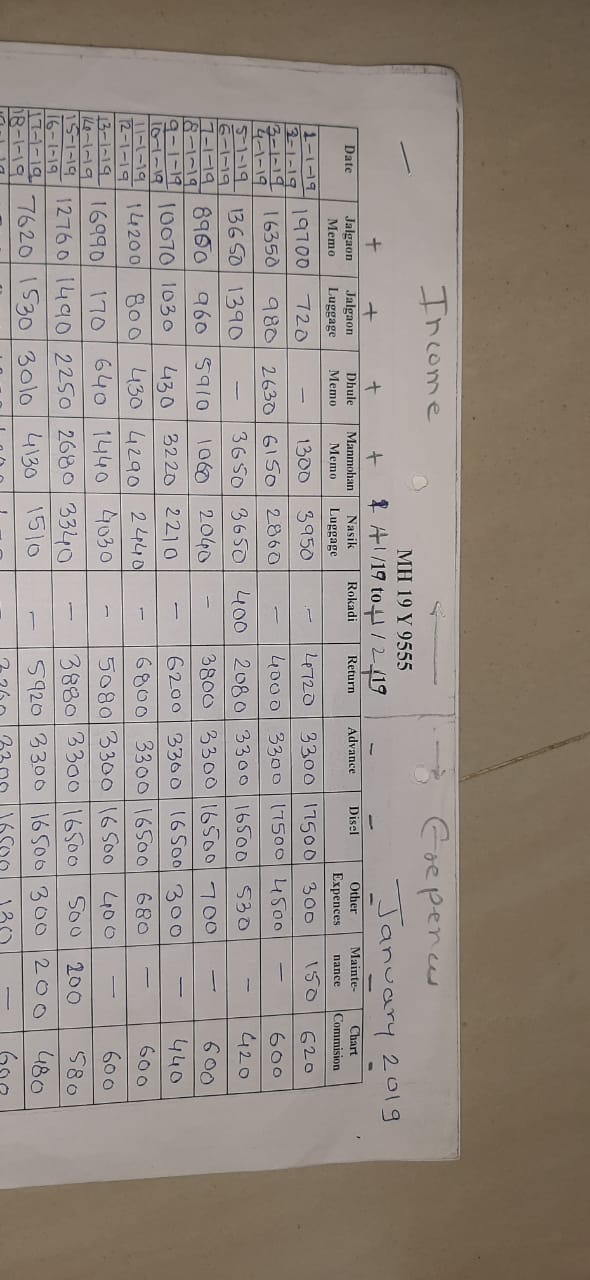 — Income Expence
MH 19 Y 9555
1/1/19 to 1/2/19 January 2019
+ + + + - - - - -
Date Jalgaon Memo Jalgaon Luggage Dhule Memo Manmohan Memo Nasik Luggage Rokadi Return Advance Disel Other Expences Mainte-nance Chart Commision
1-1-19 2-1-19 19700 720 — 1300 3950 — 4720 3300 17500 300 150 620
3-1-19 4-1-19 16350 980 2630 6150 2860 — 4000 3300 17500 4500 — 600
5-1-19 6-1-19 13650 1390 — 3650 3650 400 2080 3300 16500 530 — 420
7-1-19 8-1-19 8960 960 5910 1060 2040 — 3800 3300 16500 700 — 600
9-1-19 10-1-19 10070 1030 430 3220 2210 — 6200 3300 16500 300 — 440
11-1-19 12-1-19 14200 800 430 4290 2440 — 6800 3300 16500 680 — 600
13-1-19 14-1-19 16990 170 640 1440 4030 — 5080 3300 16500 400 — 600
15-1-19 16-1-19 12760 1490 2250 2680 3340 — 3880 3300 16500 500 200 580
17-1-19 18-1-19 7620 1530 3010 4130 1510 — 5920 3300 16500 300 200 480
3300 16500 130 — 600